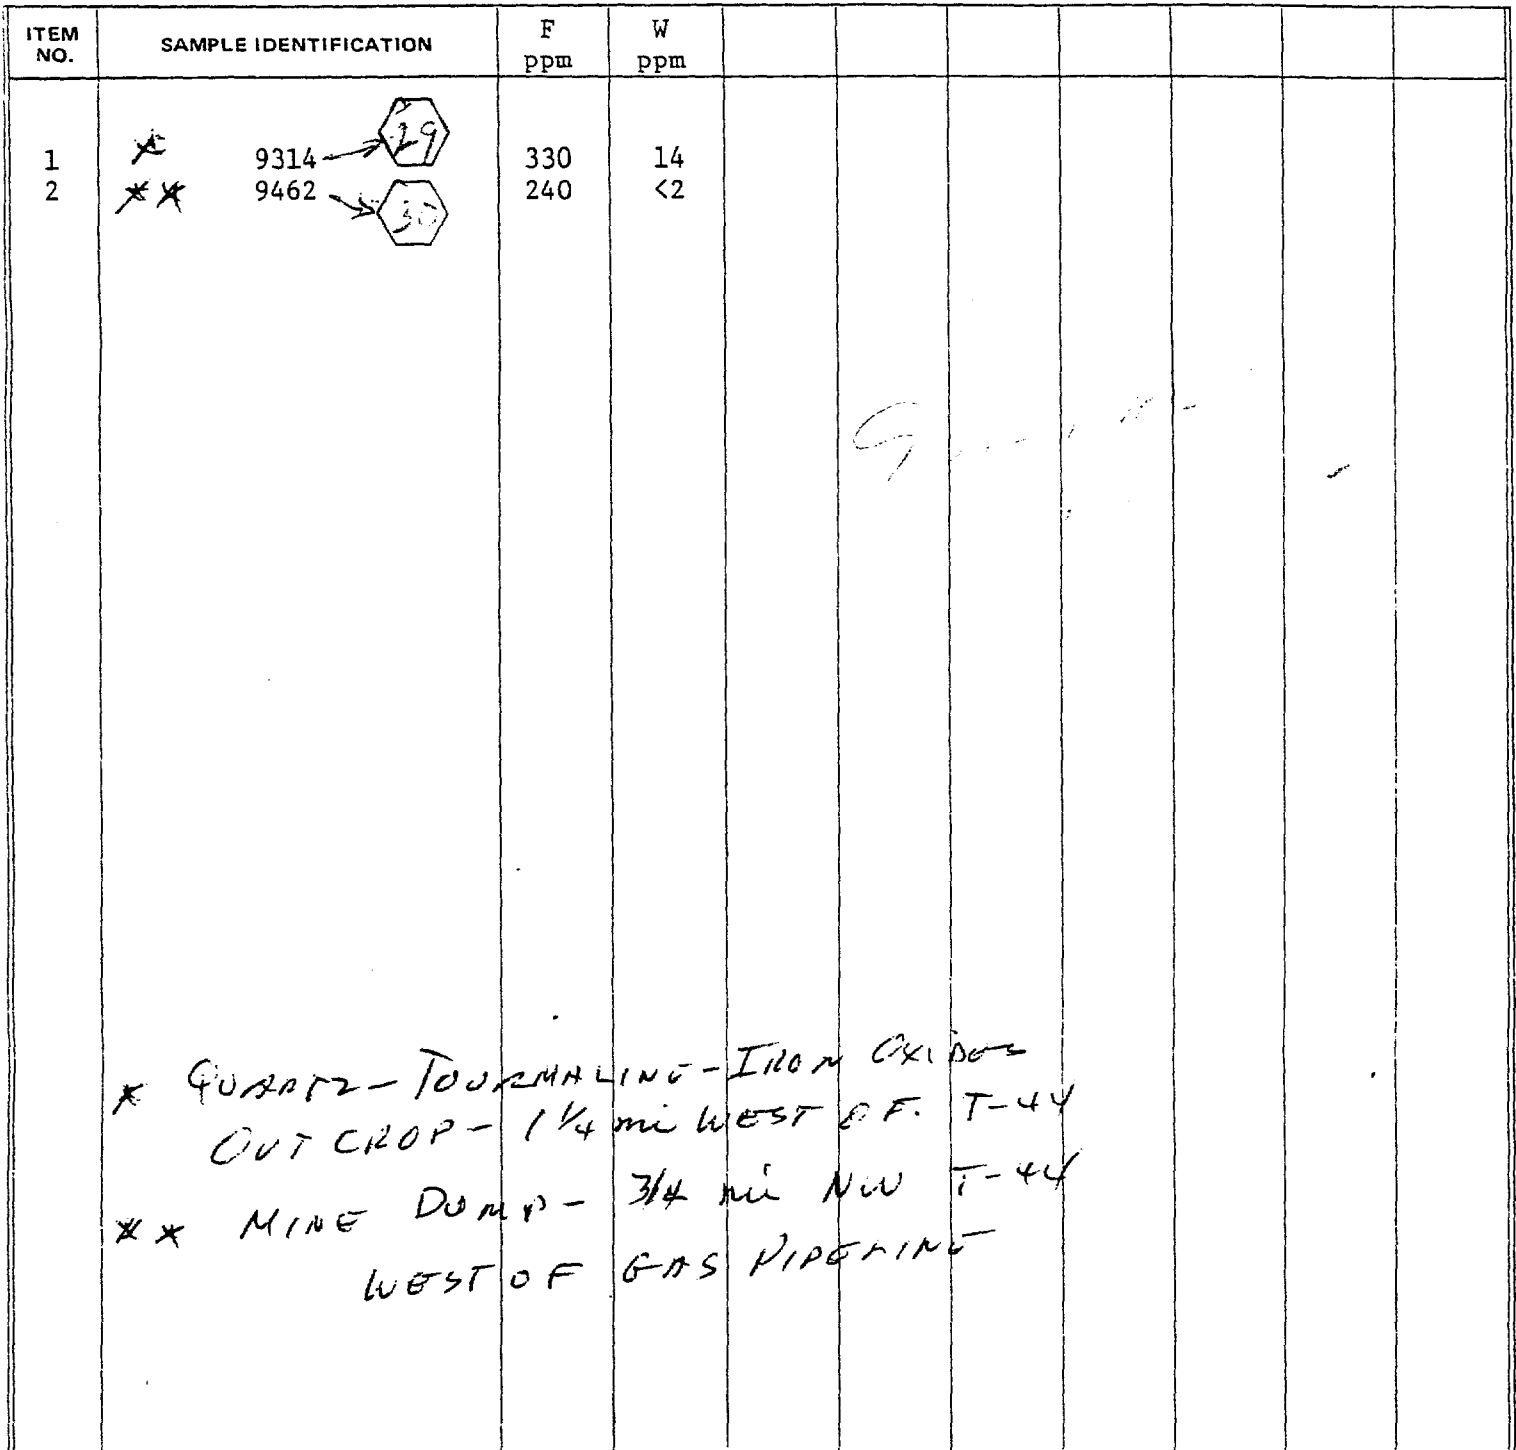 ITEM NO. SAMPLE IDENTIFICATION F ppm W ppm
1 * 9314 29 330 14
2 ** 9462 30 240 <2
* QUARTZ - TOURMALINE - IRON OXIDES
OUTCROP - 1 1/4 mi WEST OF. T-44
** MINE DUMP - 3/4 mi NW T-44
WEST OF GAS PIPELINE